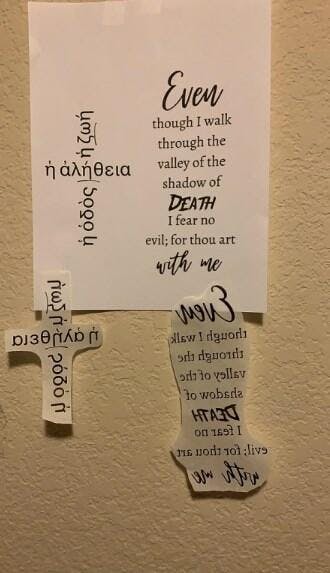 ἡ ὁδός ἡ ζωή
ἡ ἀλήθεια
Even
though I walk
through the
valley of the
shadow of
DEATH
I fear no
evil; for thou art
with me
ἡ ὁδός ἡ ζωή
ἡ ἀλήθεια
Even
though I walk
through the
valley of the
shadow of
DEATH
I fear no
evil; for thou art
with me